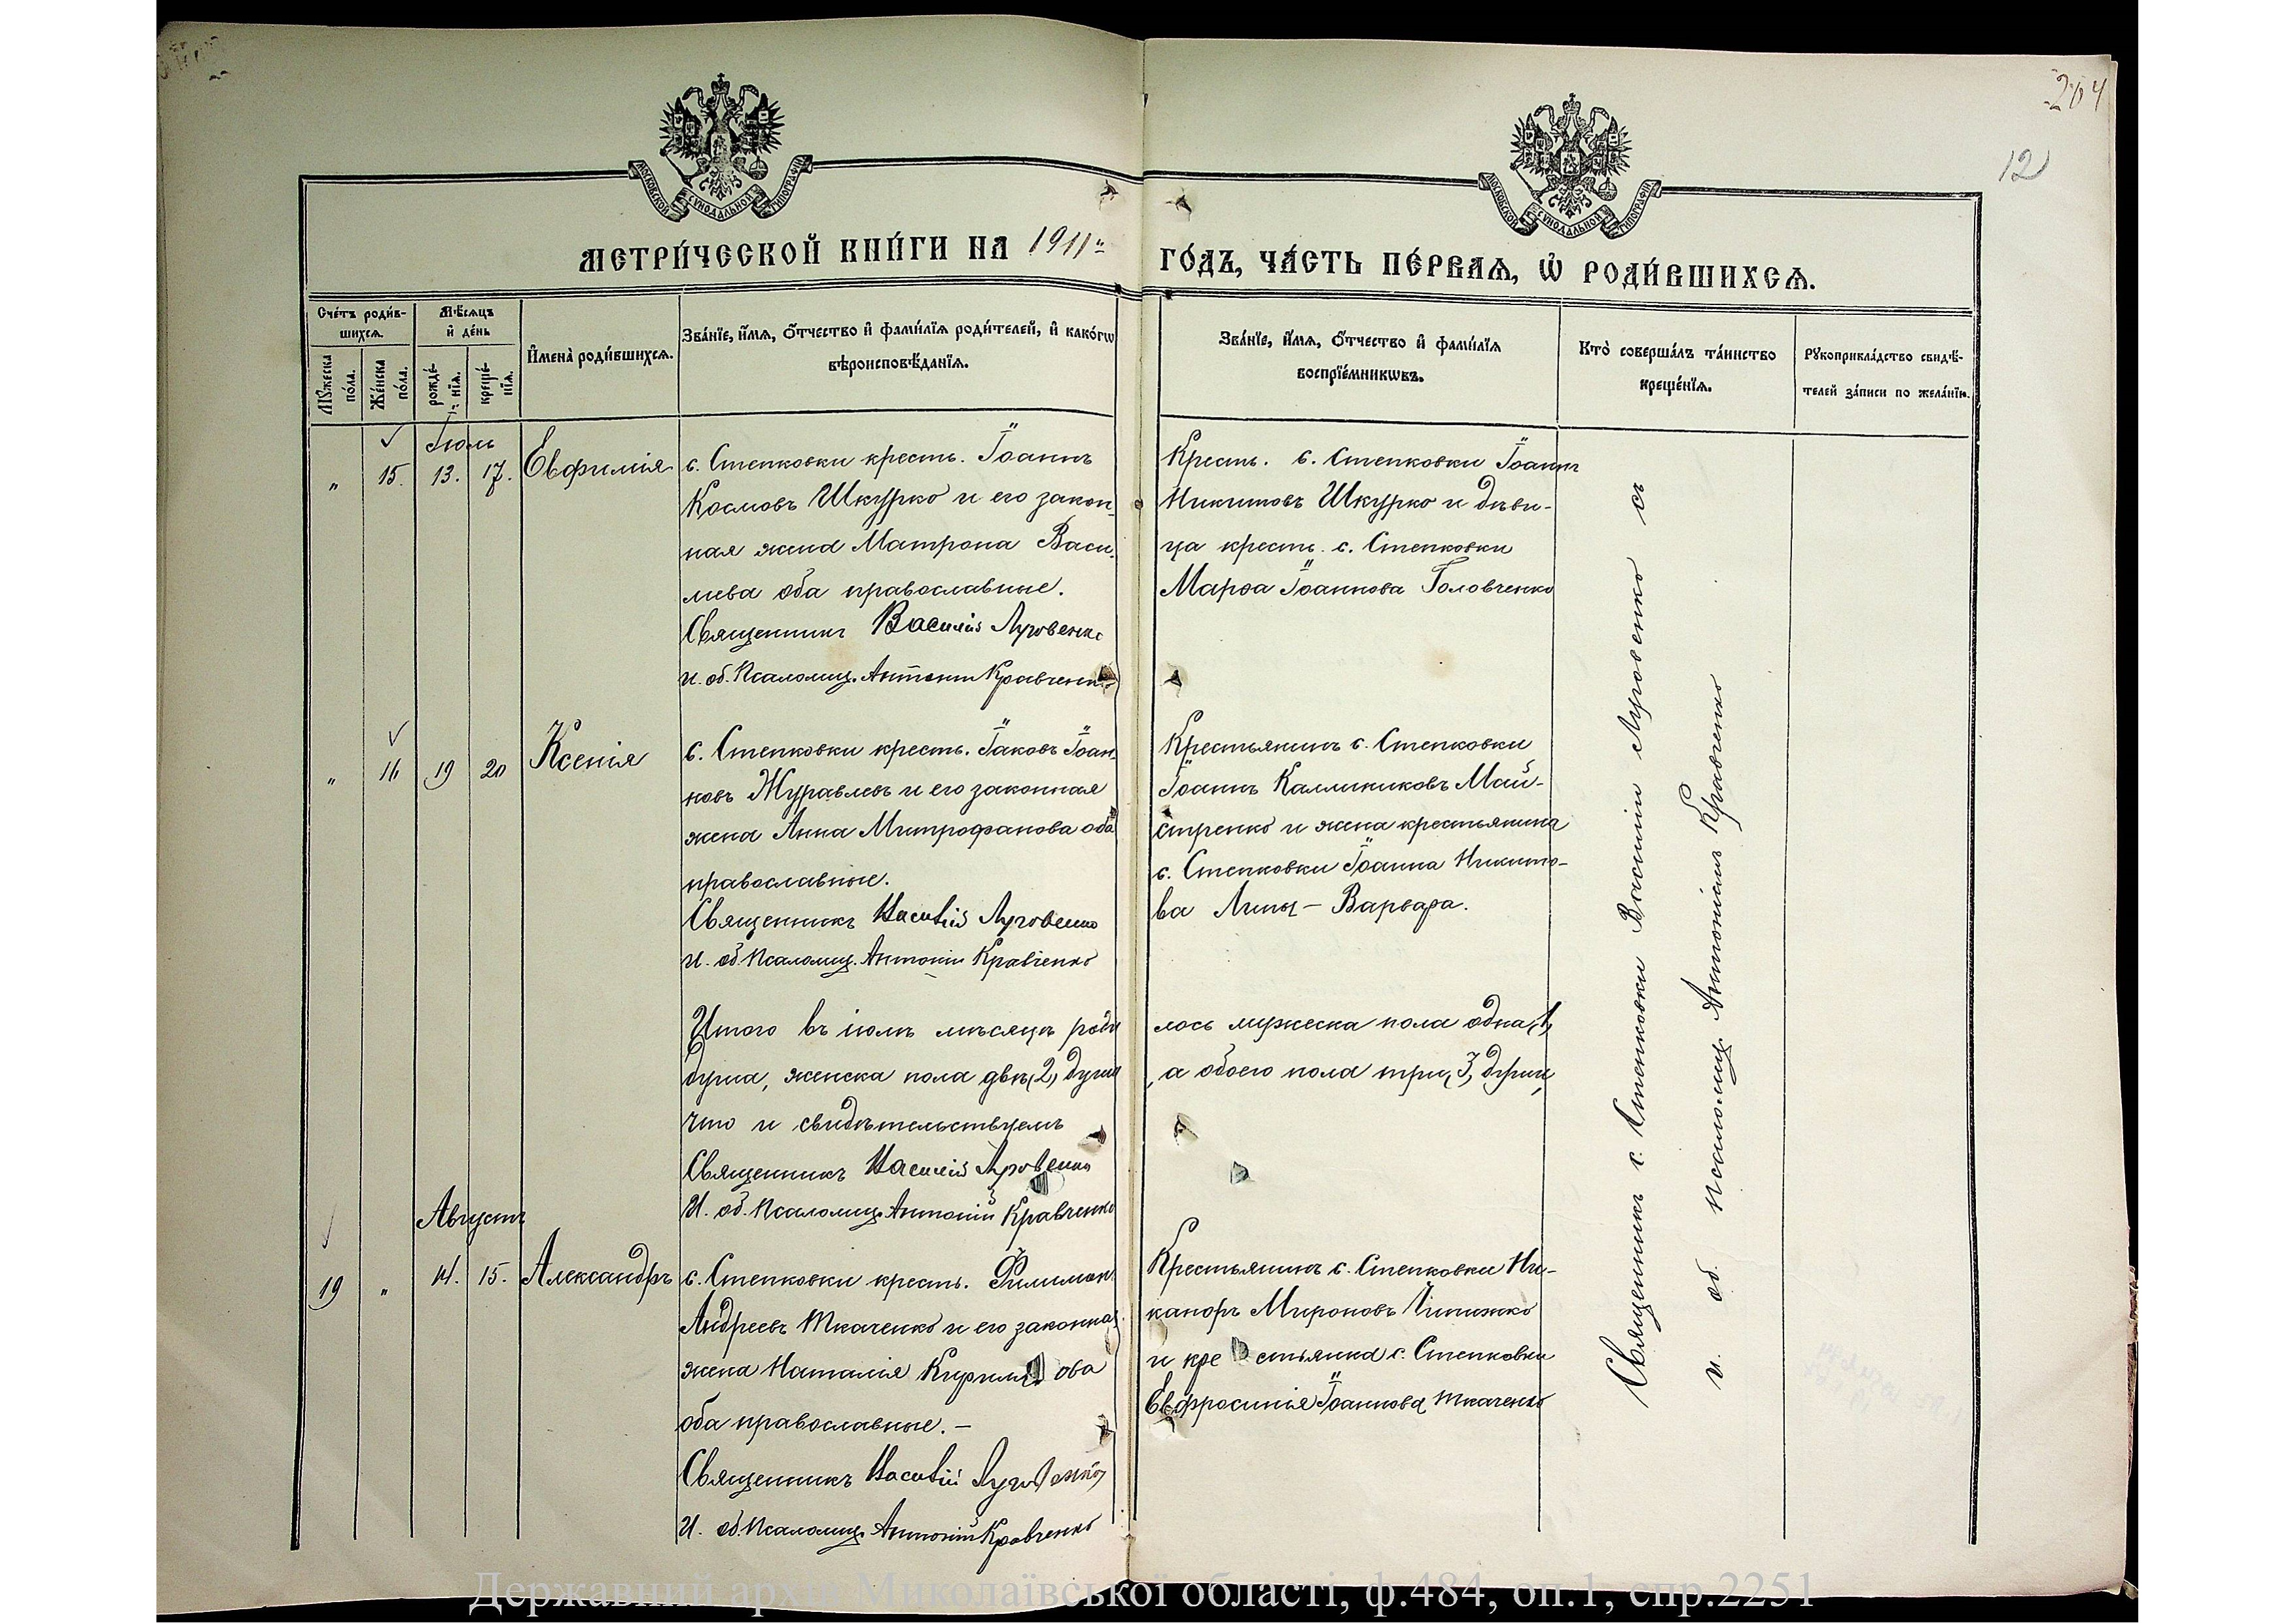 204
12
МОСКОВСКОЙ СѴНОДАЛЬНОЙ ТИПОГРАФІИ
МОСКОВСКОЙ СѴНОДАЛЬНОЙ ТИПОГРАФІИ
МЕТРИ́ЧЕСКОЙ КНИ́ГИ НА 1911й
ГО́ДЪ, ЧА́СТЬ ПЕ́РВАѦ, Ѡ҆ РОДИ́ВШИХСѦ.
Сче́тъ роди́в-
шихсѧ.
Мꙋ́жеска
по́ла.
Же́нска
по́ла.
Мѣ́сѧцъ
и҆ де́нь
рожде́-
нїѧ.
креще́-
нїѧ.
И҆мена̀ роди́вшихсѧ.
Зва́нїе, и҆́мѧ, ѻ҆́тчество и҆ фами́лїѧ роди́телей, и҆ како́гѡ
вѣроисповѣ́данїѧ.
Зва́нїе, и҆́мѧ, ѻ҆́тчество и҆ фами́лїѧ
воспрїе́мникѡвъ.
Кто̀ соверша́лъ та́инство
креще́нїѧ.
Рꙋкоприкла́дство свидѣ́-
телей за́писи по жела́нїю.
Іюль
" 15. 13. 17. Евфимія
с. Степковки кресть. Іоаннъ
Космовъ Шкурко и его закон-
ная жена Матрона Васи-
лиева оба православные.
Священникъ Василій Луговенко
и. об. Псаломщ. Антоній Кравченко
Кресть. с. Степковки Іоаннъ
Никитовъ Шкурко и дѣви-
ца кресть. с. Степковки
Марѳа Іоаннова Головченко
" 16 19 20 Ксенія
с. Степковки кресть. Іаковъ Іоан-
новъ Журавлевъ и его законная
жена Анна Митрофанова оба
православные.
Священникъ Василій Луговенко
и. об. Псаломщ. Антоній Кравченко
Крестьянинъ с. Степковки
Іоаннъ Каллиниковъ Май-
стренко и жена крестьянина
с. Степковки Іоанна Никито-
ва Липы - Варвара.
Итого въ іюлѣ мѣсяцѣ роди
лось мужеска пола одна (1)
душа, женска пола двѣ (2) души
, а обоего пола три (3) души,
что и свидѣтельствуемъ
Священникъ Василій Луговенко
И. об. Псаломщ. Антоній Кравченко
Августъ
19 " 14. 15. Александръ
с. Степковки кресть. Филимонъ
Андреевъ Ткаченко и его законная
жена Наталія Кирилл ова
оба православные. -
Священникъ Василій Луговенко
И. об. Псаломщ. Антоній Кравченко
Крестьянинъ с. Степковки Ни-
каноръ Мироновъ Чижижко
и кре стьянка с. Степковки
Евфросинія Іоаннова Ткаченко
Священникъ с. Степковки Василій Луговенко съ
и. об. Псаломщ. Антоніемъ Кравченко
Державний архів Миколаївської області, ф.484, оп.1, спр.2251